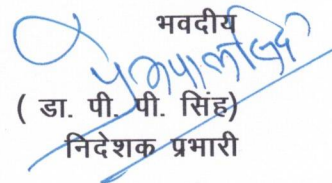 भवदीय
( डा. पी. पी. सिंह)
निदेशक प्रभारी